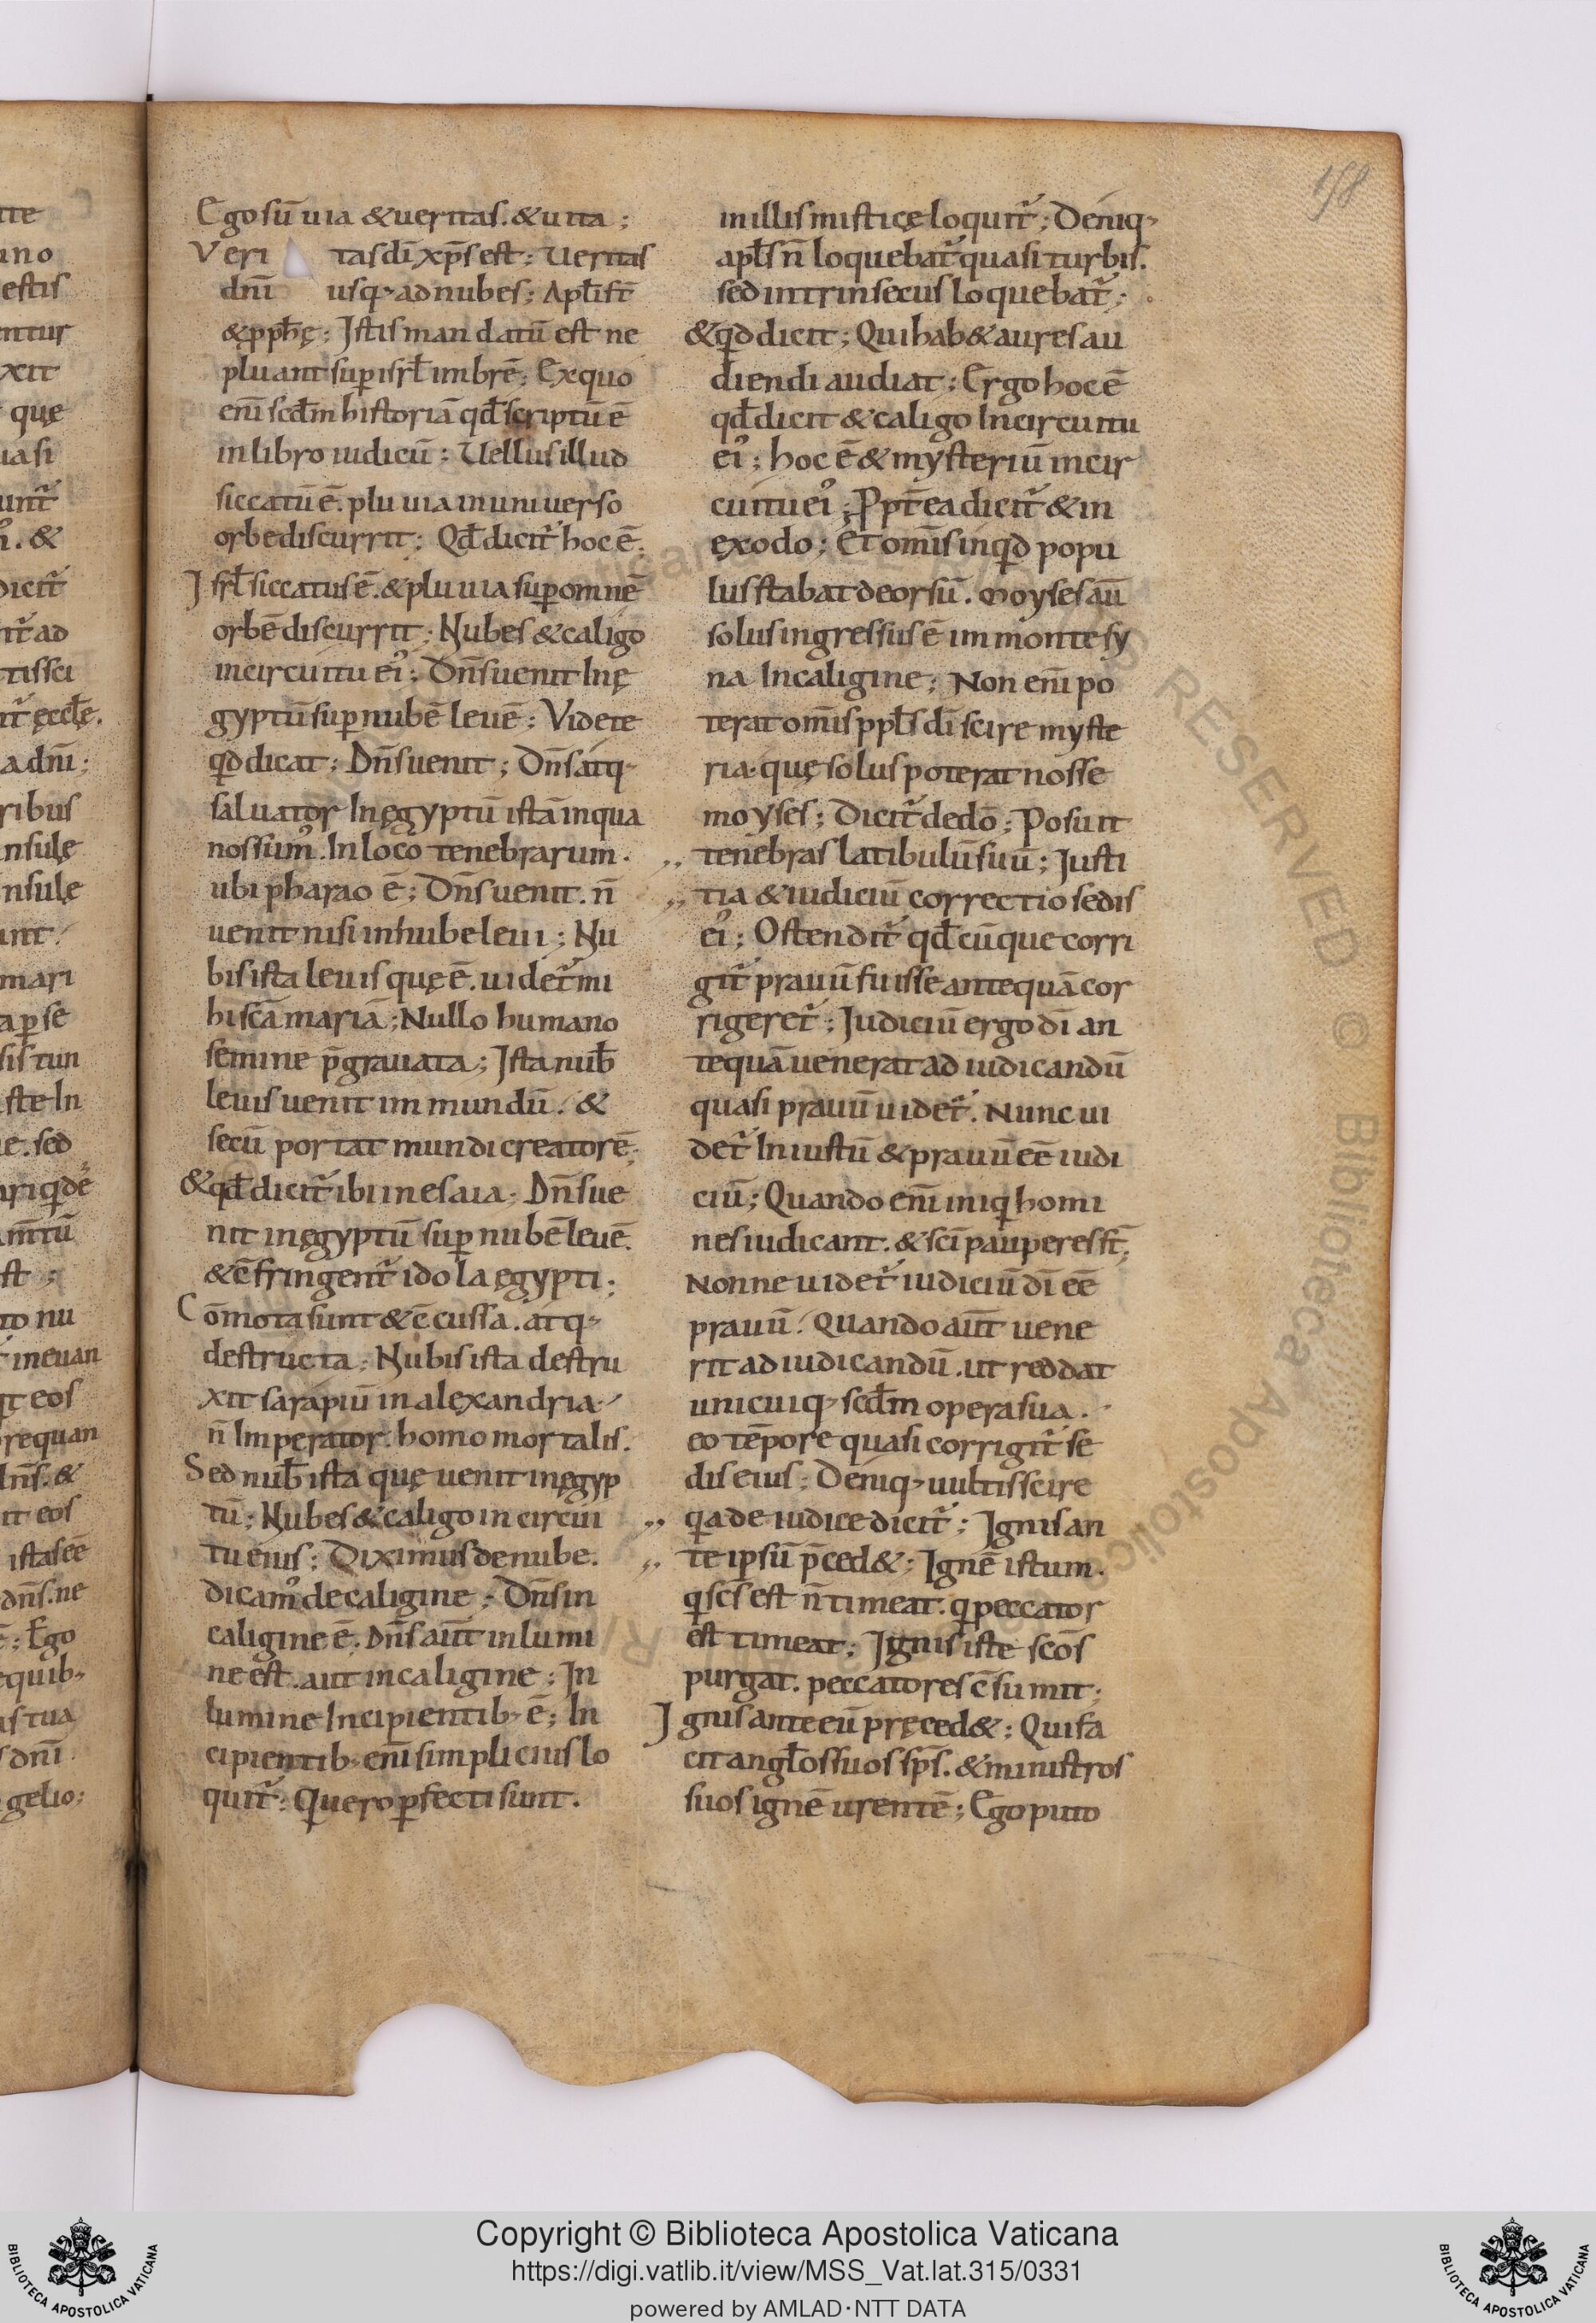 158
Ego sū uia & ueritas. & uita;
Veri tas dī xp̄s est; Ueritas
dnī usq; ad nubes; Apl̄i st̄
& pph̄ę; Istis mandatū est ne
pluant sup isrl̄ imbrē; Ex quo
enī scd̄m historiā qd̄ scriptū ē
in libro iudicū; Uellus illud
siccatū ē. pluuia in uniuerso
orbe discurrit; Qd̄ dicit᷑ hoc ē.
Isrl̄ siccatus ē. & pluuia sup omnē
orbē discurrit; Nubes & caligo
in circuitu ei᾿; Dn̄s uenit In ę
gyptū sup nubē leuē; Videte
qd dicat; Dn̄s uenit; Dn̄s atq;
saluator In ęgyptū istā in qua
nos sum᾿. In loco tenebrarum.
ubi pharao ē; Dn̄s uenit. n̄
uenit nisi in nube leui; Nu
bis ista leuis quę ē. uidet᷑ mi
hi scā mariā; Nullo humano
semine p̄grauata; Ista nub̄
leuis uenit im mundū. &
secū portat mundi creatorē;
& qd̄ dicit᷑ ibi in esaia; Dn̄s ue
nit in ęgyptū sup nubē leuē.
& c̄fringent᷑ idola ęgypti;
Cōmota sunt & c̄cussa. atq;
destructa; Nubis ista destru
xit sarapiū in alexandria.
n̄ Imperator. homo mortalis.
Sed nub̄ ista quę uenit in ęgyp
tū; Nubes & caligo in circui
tu eius; Diximus de nube.
dicam᾿ de caligine; Dn̄s in
caligine ē. Dn̄s aut̄ in lumi
ne est. aut in caligine; In
lumine Incipientib; ē; In
cipientib; enī simplicius lo
quit᷑; Quero pfecti sunt.
in illis misticę loquit᷑; Deniq;
apl̄s n̄ loquebat᷑ quasi turbis.
sed intrinsecus loquebat᷑;
& qd dicit; Qui hab& aures au
diendi audiat; Ergo hoc ē
qd̄ dicit & caligo In circuitu
ei᾿; hoc ē & mysteriū in cir
cuitu ei᾿; Ppt̄ea dicit᷑ & in
exodo; Et omīs inqd popu
lus stabat deorsū. Moyses aū
solus ingressus ē im monte sy
na In caligine; Non enī po
terat omīs ppl̄s dī scire myste
ria. quę solus poterat nosse
moyses; Dicit᷑ de dō; Posuit
,, tenebras latibulū suū; Justi
,, tia & iudiciū correctio sedis
ei᾿; Ostendit᷑ qd̄cūque corri
git᷑ prauū fuisse antequā cor
rigeret᷑; Judiciū ergo dī an
tequā uenerat ad iudicandū
quasi prauū uidet᷑. Nunc ui
det᷑ In iustū & prauū eē iudi
ciū; Quando enī iniqi homi
nes iudicant. & scī pauperes st̄;
Nonne uidet᷑ iudiciū dī eē
prauū. Quando aut̄ uene
rit ad iudicandū. ut reddat
unicuiq; scd̄m opera sua.
eo tēpore quasi corrigit᷑ se
dis eius; Deniq; uultis scire
,, qa de iudice dicit᷑; Ignis an
,, te ipsū p̄ced&; Ignē istum.
qi scs̄ est n̄ timeat. qi peccator
est timeat; Ignis iste scōs
purgat. peccatores c̄sumit;
Ignis ante eū pręced&; Qui fa
cit angl̄os suos sps̄. & ministros
suos ignē urentē; Ego puto
Copyright © Biblioteca Apostolica Vaticana
https://digi.vatlib.it/view/MSS_Vat.lat.315/0331
powered by AMLAD·NTT DATA